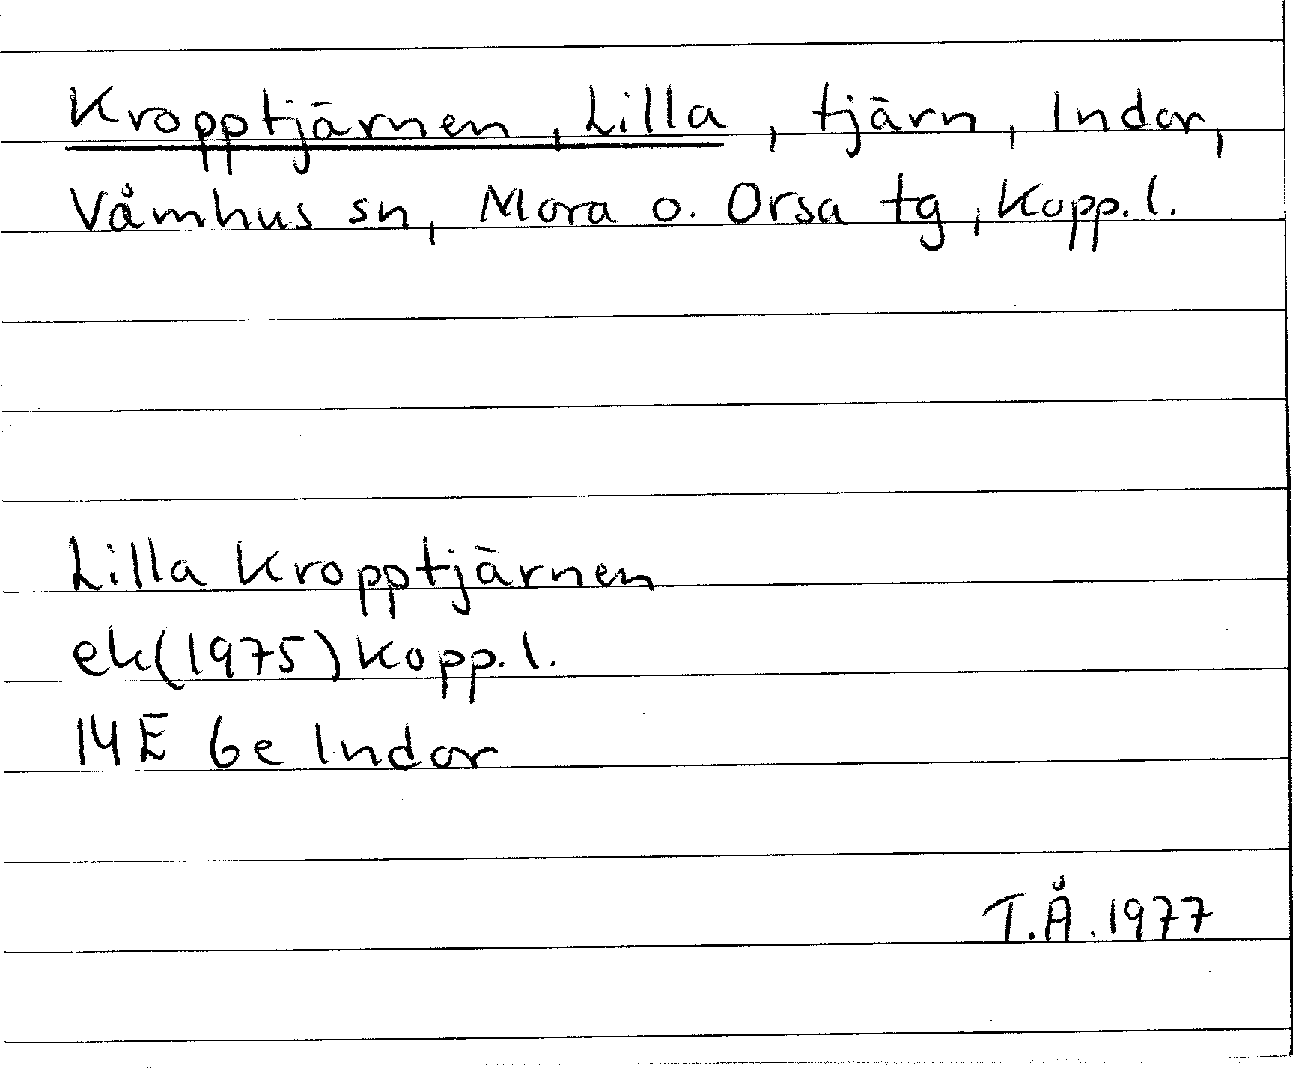 Kropptjärnen, Lilla, tjärn, Indor,
Våmhus sn, Mora o. Orsa tg, Kopp. l.
Lilla Kropptjärnen
ek(1975) Kopp. l.
14E 6e Indor
T.Å. 1977